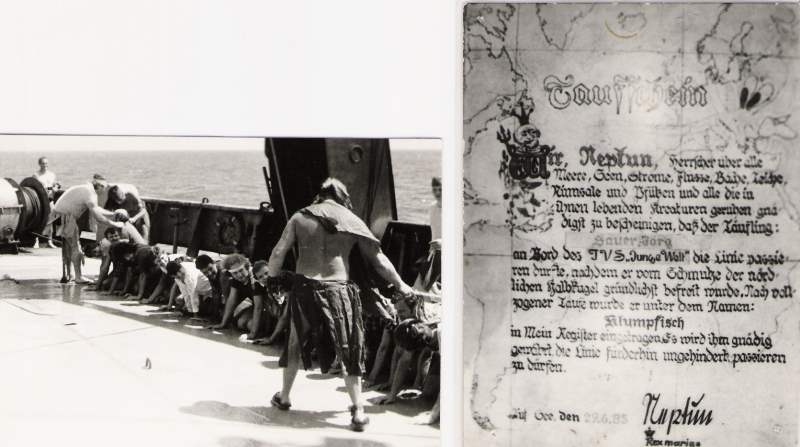 Taufschein
Wir, Neptun, Herrscher über alle
Meere, Seen, Ströme, Flüsse, Bäche, Teiche,
Rinnsale und Pfützen und alle die in
ihnen lebenden Kreaturen geruhen gnä
digst zu bescheinigen, daß der Täufling:
Sauer Jörg
an Bord des TVS „Junge Welt" die Linie passie
ren durfte, nachdem er vom Schmutze der nörd
lichen Halbkugel gründlichst befreit wurde. Nach voll
zogener Taufe wurde er unter dem Namen:
Klumpfisch
in Mein Register eingetragen. Es wird ihm gnädig
gewährt, die Linie fürderhin ungehindert passieren
zu dürfen.
Auf See, den 29.6.83
Neptun
Rex maris